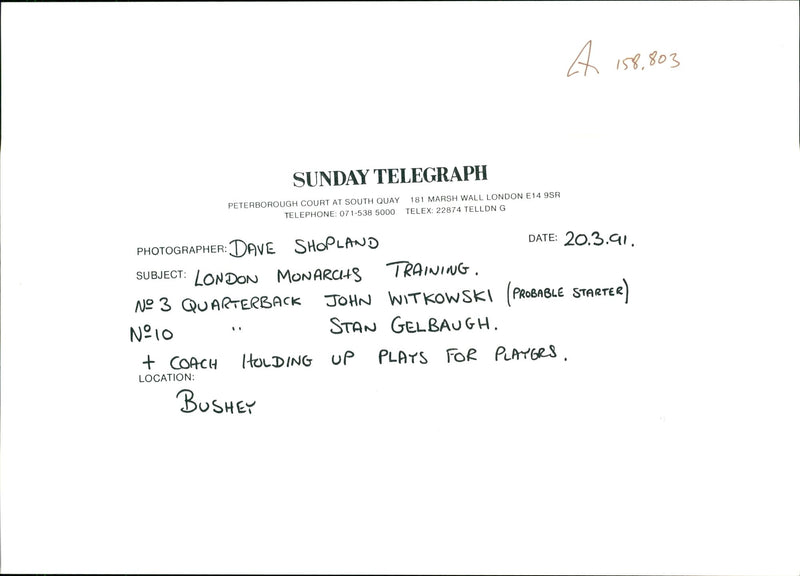 A 158,803
SUNDAY TELEGRAPH
PETERBOROUGH COURT AT SOUTH QUAY 181 MARSH WALL LONDON E14 9SR
TELEPHONE: 071-538 5000 TELEX: 22874 TELLDN G
PHOTOGRAPHER: DAVE SHOPLAND DATE: 20.3.91.
SUBJECT: LONDON MONARCHS TRAINING.
Nº 3 QUARTERBACK JOHN WITKOWSKI (PROBABLE STARTER)
Nº 10 " STAN GELBAUGH.
+ COACH HOLDING UP PLAYS FOR PLAYERS.
LOCATION:
BUSHEY